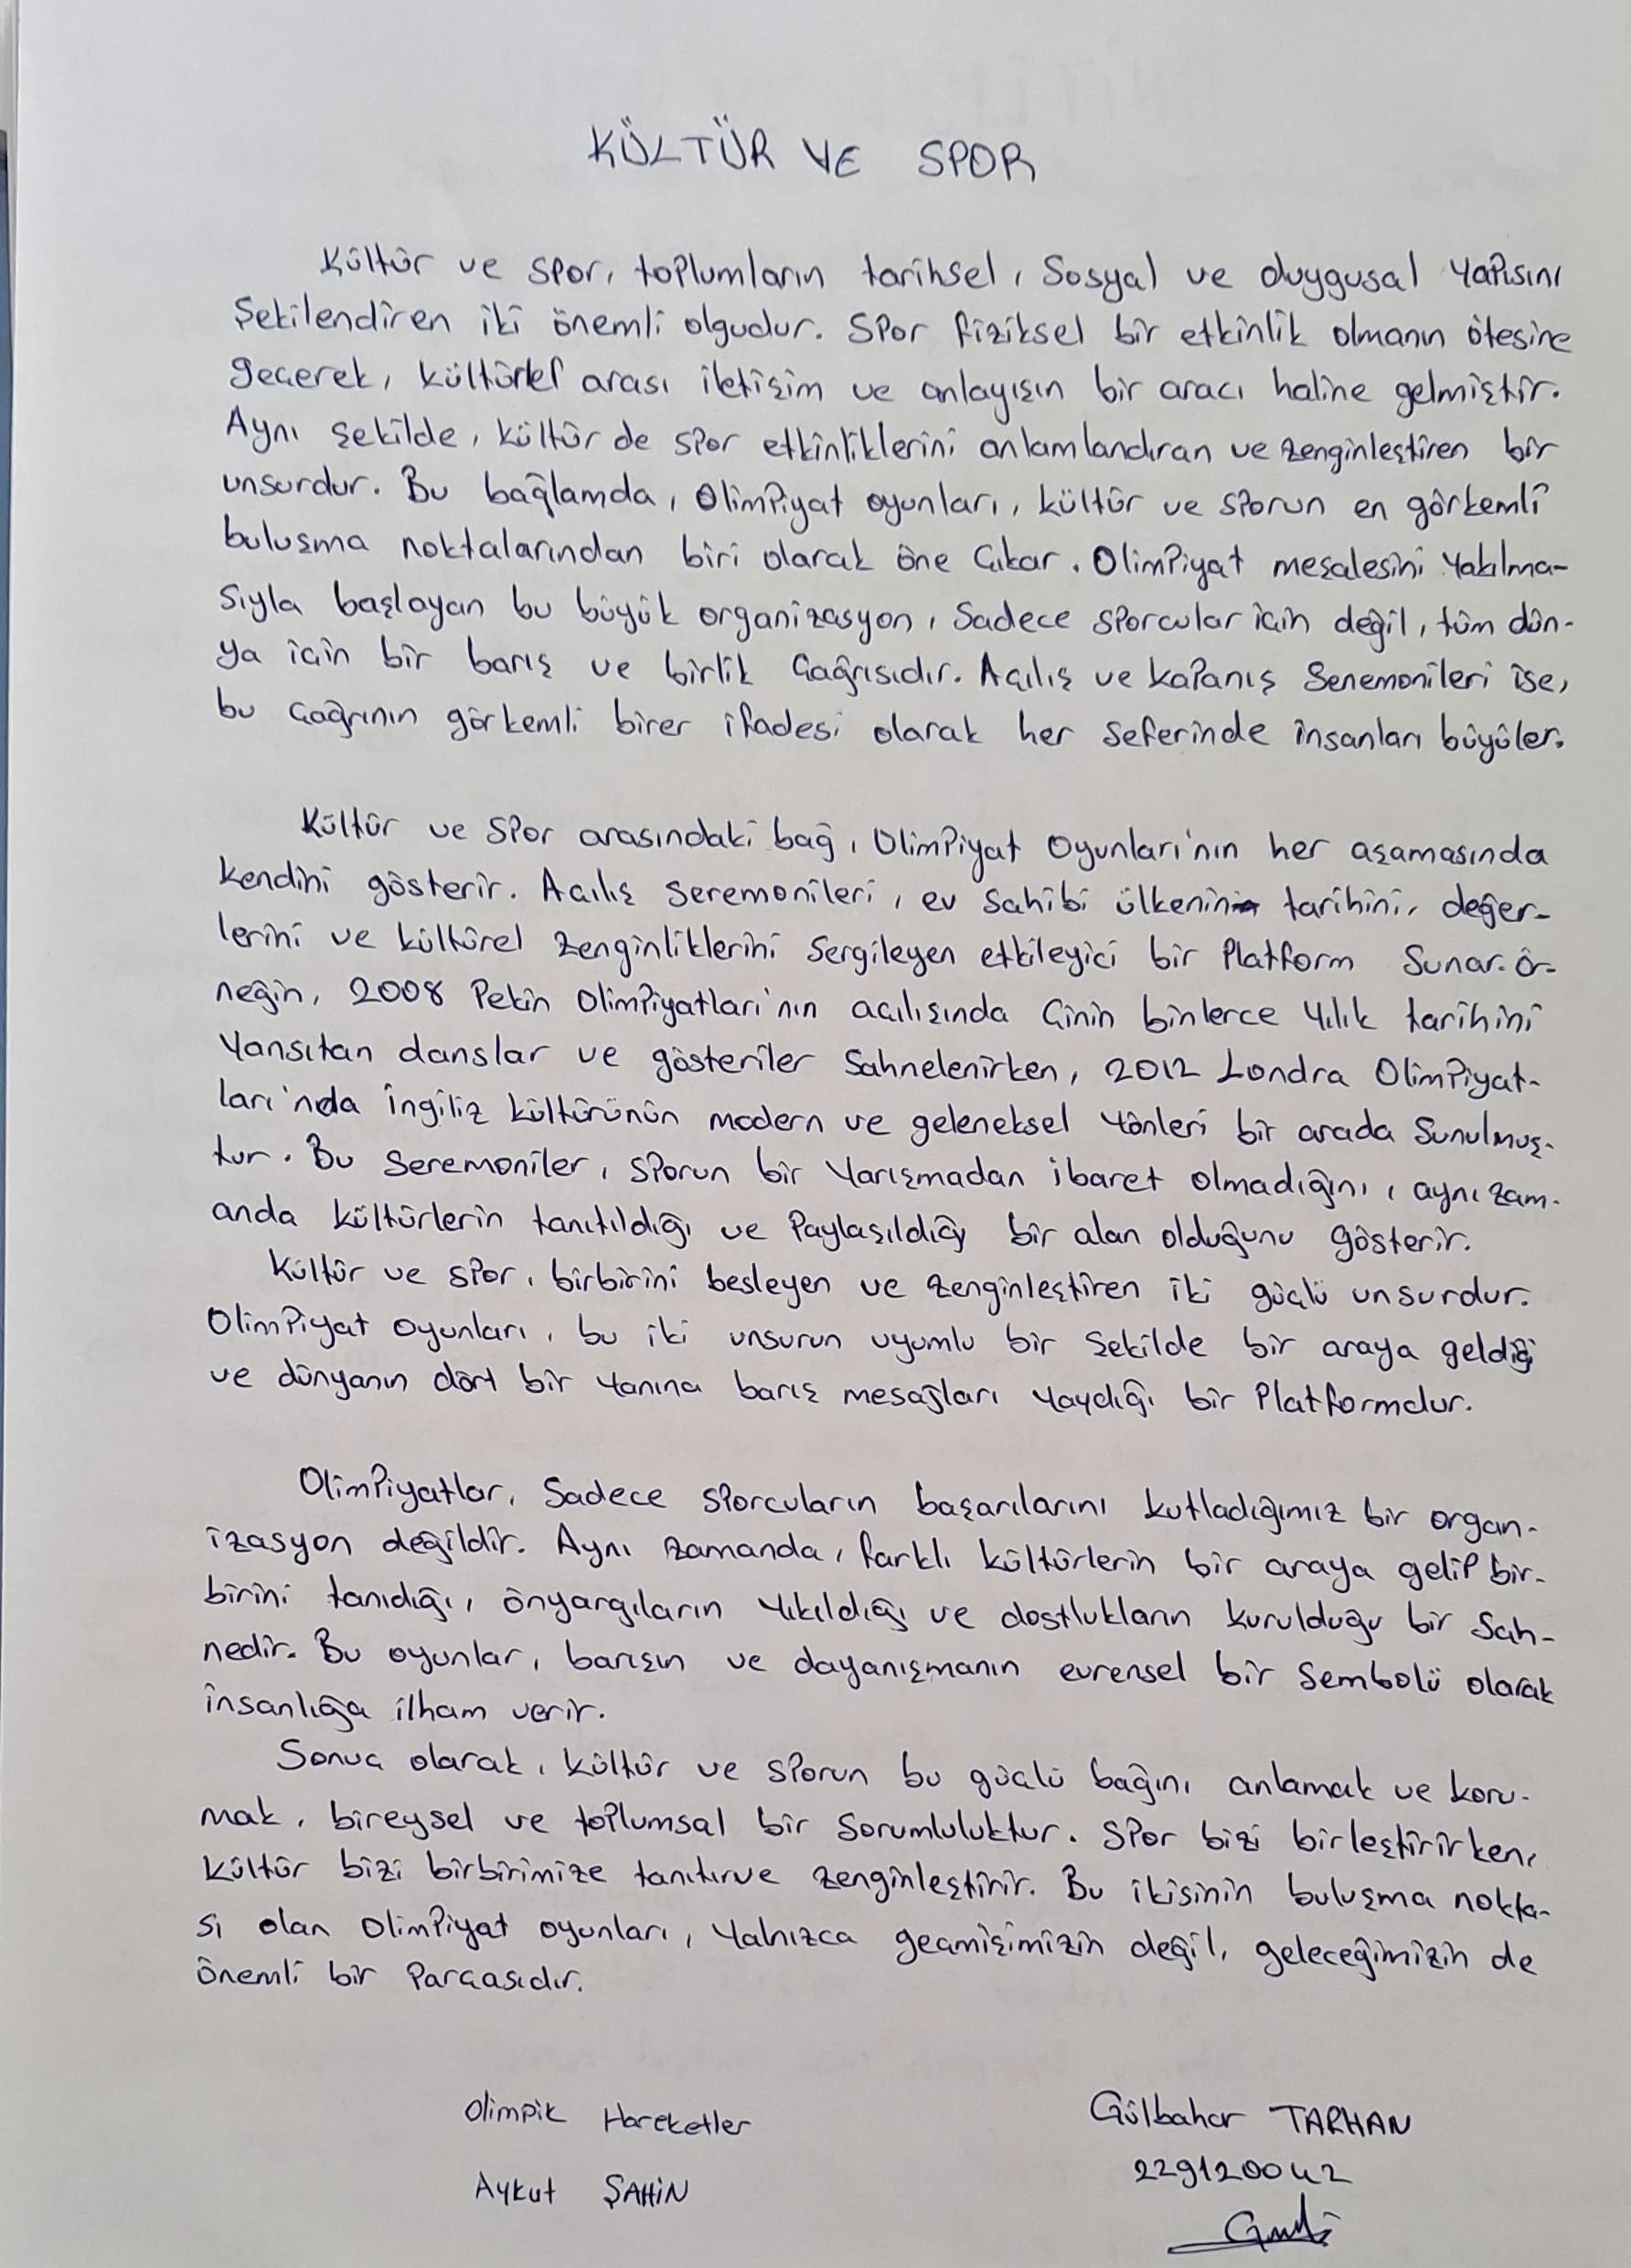 KÜLTÜR VE SPOR
Kültür ve spor, toplumların tarihsel, Sosyal ve duygusal yapısını
Şekilendiren iki önemli olgudur. Spor fiziksel bir etkinlik olmanın ötesine
geçerek, kültürler arası iletişim ve anlayışın bir aracı haline gelmiştir.
Aynı şekilde, kültür de spor etkinliklerini anlamlandıran ve zenginleştiren bir
unsurdur. Bu bağlamda, Olimpiyat oyunları, kültür ve sporun en görkemli
buluşma noktalarından biri olarak öne Çıkar. Olimpiyat meşalesini yakılma-
sıyla başlayan bu büyük organizasyon, Sadece sporcular için değil, tüm dün-
ya için bir barış ve birlik Çağrısıdır. Açılış ve kapanış Senemonileri ise,
bu Çağrının görkemli birer ifadesi olarak her seferinde insanları büyüler.
Kültür ve spor arasındaki bağ, Olimpiyat Oyunları'nın her aşamasında
kendini gösterir. Açılış seremonileri, ev sahibi ülkenin tarihini, değer-
lerini ve kültürel zenginliklerini sergileyen etkileyici bir platform Sunar. Ö-
neğin, 2008 Pekin Olimpiyatları'nın açılışında Çinin binlerce yılık tarihini
Yansıtan danslar ve gösteriler Sahnelenirken, 2012 Londra Olimpiyat-
ları'nda İngiliz kültürünün modern ve geleneksel yönleri bir arada Sunulmuş-
tur. Bu seremoniler, sporun bir yarışmadan ibaret olmadığını, aynı zam-
anda kültürlerin tanıtıldığı ve Paylaşıldığı bir alan olduğunu gösterir.
Kültür ve spor, birbirini besleyen ve zenginleştiren iki güçlü unsurdur.
Olimpiyat oyunları, bu iki unsurun uyumlu bir Şekilde bir araya geldiği
ve dünyanın dört bir yanına barış mesajları yaydığı bir Platformdur.
Olimpiyatlar, Sadece sporcuların başarılarını kutladığımız bir organ-
izasyon değildir. Aynı zamanda, farklı kültürlerin bir araya gelip bir-
birini tanıdığı, önyargıların yıkıldığı ve dostlukların kurulduğu bir Sah-
nedir. Bu oyunlar, barışın ve dayanışmanın evrensel bir Sembolü olarak
insanlığa ilham verir.
Sonuç olarak, kültür ve sporun bu güçlü bağını anlamak ve koru-
mak, bireysel ve toplumsal bir Sorumluluktur. Spor bizi birleştirirken,
kültür bizi birbirimize tanıtırve zenginleştirir. Bu ikisinin buluşma nokta-
sı olan Olimpiyat oyunları, yalnızca geçmişimizin değil, geleceğimizin de
önemli bir Parçasıdır.
Olimpik Hareketler
Aykut ŞAHİN
Gülbahar TARHAN
229120042